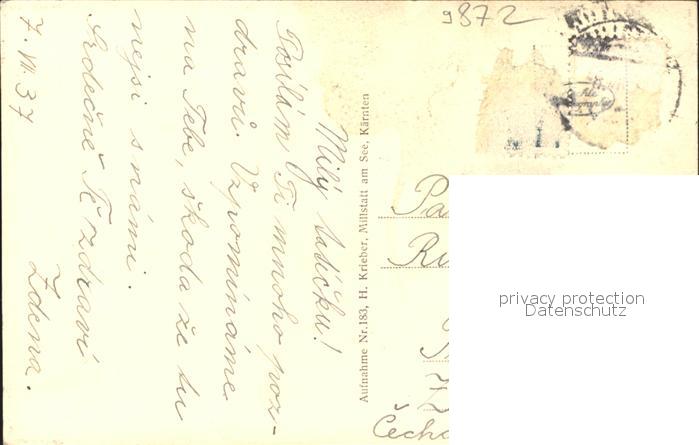 9872
Milý
Posílám Ti mnoho poz-
dravů. Vzpomínáme
na Tebe, škoda že tu
nejsi s námi.
Srdečně Tě zdraví
Zdena.
7. VII. 37
Aufnahme Nr.183, H. Krieber, Millstatt am See, Kärnten
privacy protection
Datenschutz